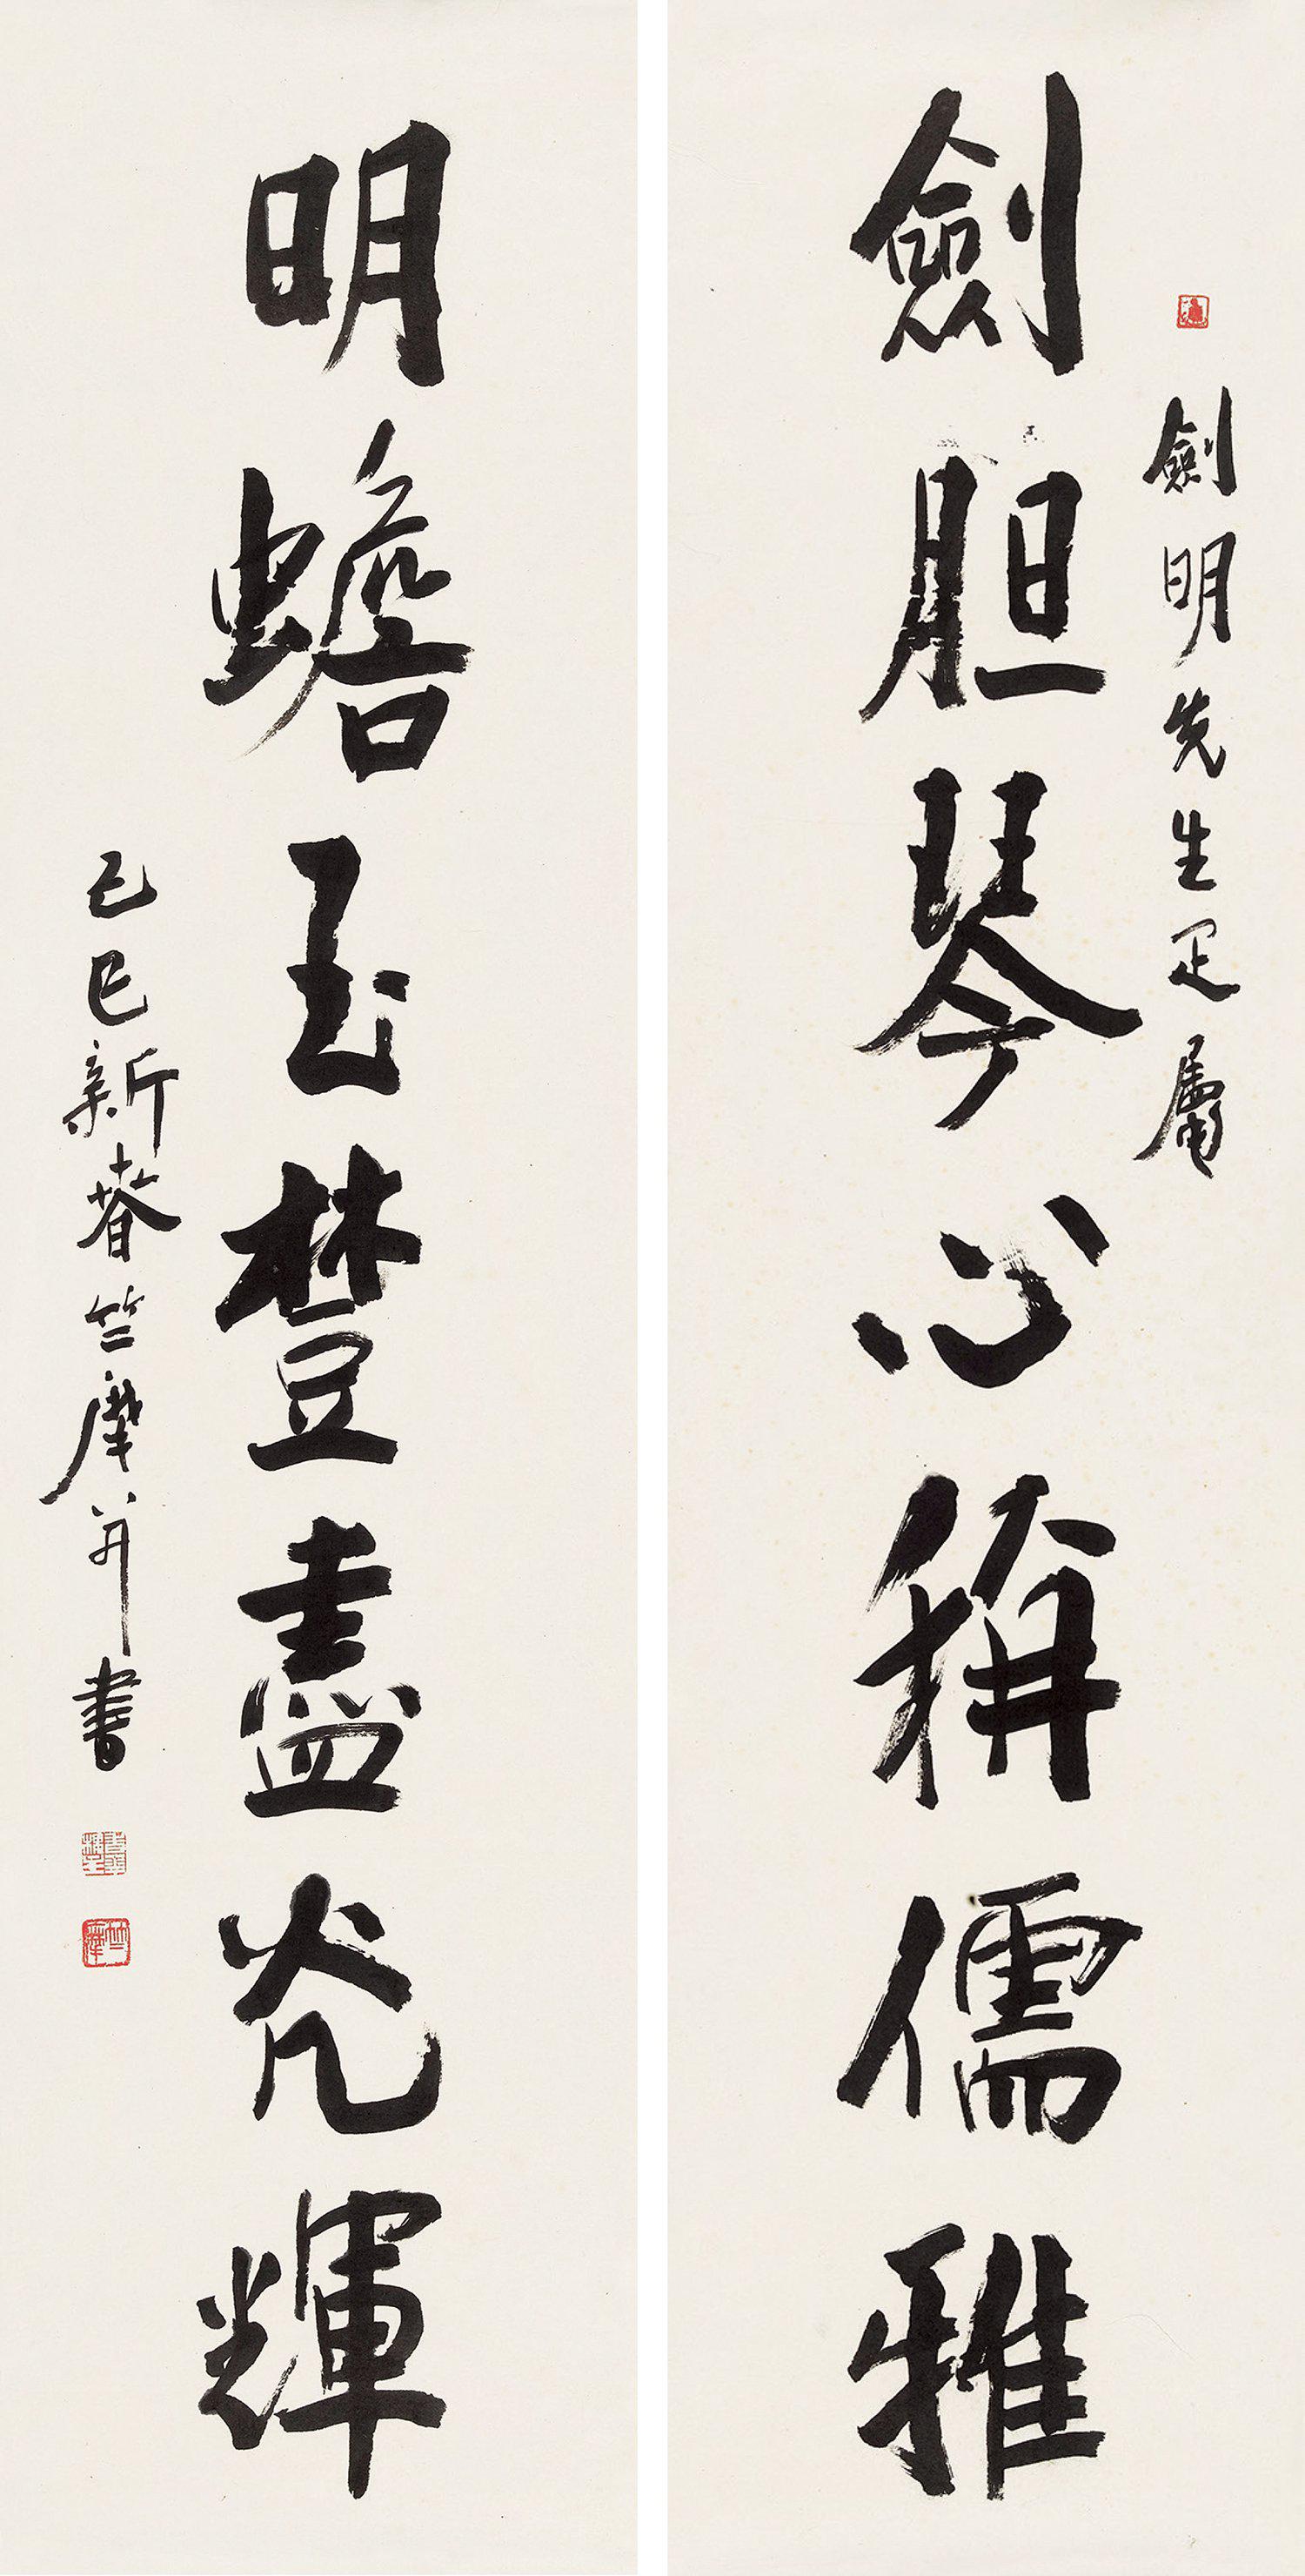 劍明先生疋屬
劍胆琴心稱儒雅
明蟾玉盡光輝
己巳新春竺摩并書
竺摩